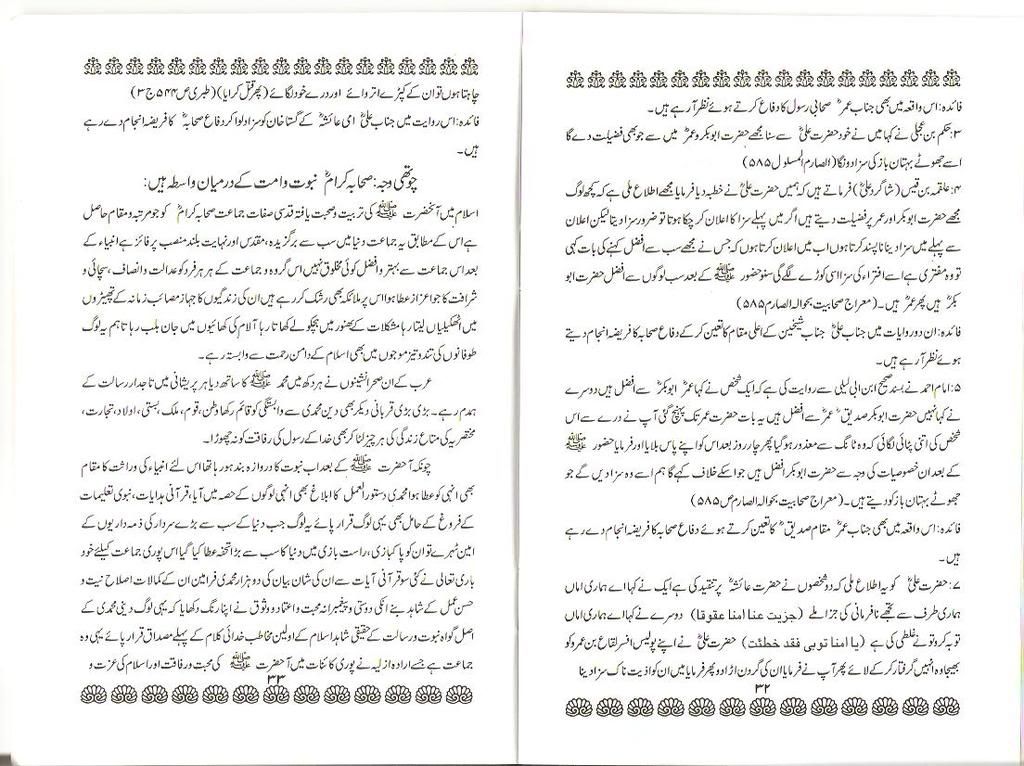 فائدہ: اس واقعہ میں بھی جناب عمرؓ صحابی رسول کا دفاع کرتے ہوئے نظر آ رہے ہیں۔
۳: حکم بن عجلی نے کہا میں نے خود حضرت علیؓ سے سنا مجھے حضرت ابوبکر و عمرؓ میں سے جو بھی فضیلت دے گا
اسے جھوٹے بہتان باز کی سزا دونگا (الصارم المسلول ۵۸۵)
۴: علقمہ بن قیس (شاگرد علیؓ) فرماتے ہیں کہ ہمیں حضرت علیؓ نے خطبہ دیا فرمایا مجھے اطلاع ملی ہے کہ کچھ لوگ
مجھے حضرت ابوبکر اور عمر پر فضیلت دیتے ہیں اگر میں پہلے سزا کا اعلان کر چکا ہوتا تو ضرور سزا دیتا لیکن اعلان
سے پہلے میں سزا دینا نا پسند کرتا ہوں اب میں اعلان کرتا ہوں کہ جس نے مجھے سب سے افضل کہنے کی بات کہی
تو وہ مفتری ہے اسے افتراء کی سزا اسی کوڑے لگے گی سنو حضور ﷺ کے بعد سب لوگوں سے افضل حضرت ابو
بکرؓ ہیں پھر عمرؓ ہیں۔ (معراج صحابیت بحوالہ الصارم ۵۸۵)
فائدہ: ان دو روایات میں جناب علیؓ جناب شیخین کے اعلی مقام کا تعین کر کے دفاع صحابہ کا فریضہ انجام دیتے
ہوئے نظر آ رہے ہیں۔
۵: امام احمد نے بسند صحیح ابن ابی لیلی سے روایت کی ہے کہ ایک شخص نے کہا عمرؓ ابوبکرؓ سے افضل ہیں دوسرے
نے کہا نہیں حضرت ابوبکر صدیقؓ عمرؓ سے افضل ہیں یہ بات حضرت عمر تک پہنچ گئی آپ نے درے سے اس
شخص کی اتنی پٹائی لگائی کہ وہ ٹانگ سے معذور ہو گیا پھر چار روز بعد اس کو اپنے پاس بلایا اور فرمایا حضور ﷺ
کے بعد ان خصوصیات کی وجہ سے حضرت ابوبکر افضل ہیں جو اسکے خلاف کہے گا ہم اسے وہ سزا دیں گے جو
جھوٹے بہتان باز کو دیتے ہیں۔ (معراج صحابیت بحوالہ الصارم ص ۵۸۵)
فائدہ: اس واقعہ میں بھی جناب عمرؓ مقام صدیقؓ کا تعین کرتے ہوئے دفاع صحابہ کا فریضہ انجام دے رہے
ہیں۔
۷: حضرت علیؓ کو یہ اطلاع ملی کہ دو شخصوں نے حضرت عائشہؓ پر تنقید کی ہے ایک نے کہا اے ہماری اماں
ہماری طرف سے تجھے نافرمانی کی جزا ملے (جزیت عنا امنا عقوقا) دوسرے نے کہا اے ہماری اماں
توبہ کرو تونے غلطی کی ہے (یا امنا توبی فقد خطئت) حضرت علیؓ نے اپنے پولیس افسر لقاع بن عمرو کو
بھیجا وہ انہیں گرفتار کر کے لائے پھر آپ نے فرمایا ان کی گردن اڑا دو پھر فرمایا میں ان کو اذیت ناک سزا دینا
۳۲
چاہتا ہوں تو ان کے کپڑے اتروائے اور درے خود لگائے (پھر قتل کرایا) (طبری ص ۵۴۴ ج ۳)
فائدہ: اس روایت میں جناب علیؓ امی عائشہؓ کے گستاخان کو سزا دلوا کر دفاع صحابہؓ کا فریضہ انجام دے رہے
ہیں۔
چوتھی وجہ: صحابہ کرامؓ نبوت و امت کے درمیان واسطہ ہیں:
اسلام میں آنحضرت ﷺ کی تربیت و صحبت یافتہ قدسی صفات جماعت صحابہ کرامؓ کو جو مرتبہ و مقام حاصل
ہے اس کے مطابق یہ جماعت دنیا میں سب سے برگزیدہ، مقدس اور نہایت بلند منصب پر فائز ہے انبیاء کے
بعد اس جماعت سے بہتر و افضل کوئی مخلوق نہیں اس گروہ و جماعت کے ہر ہر فرد کو عدالت و انصاف، سچائی و
شرافت کا جو اعزاز عطا ہوا اس پر ملائکہ بھی رشک کر رہے ہیں ان کی زندگیوں کا جہاز مصائب زمانہ کے تھپیڑوں
میں اٹھکیلیاں لیتا رہا مشکلات کے بھنور میں ہچکولے کھاتا رہا آلام کی کھائیوں میں جان بلب رہا تاہم یہ لوگ
طوفانوں کی تند و تیز موجوں میں بھی اسلام کے دامن رحمت سے وابستے رہے۔
عرب کے ان صحرانشینوں نے ہر دکھ میں محمد ﷺ کا ساتھ دیا ہر پریشانی میں تاجدار رسالت کے
ہمدم رہے۔ بڑی بڑی قربانی دیکر بھی دین محمدی سے وابستگی کو قائم رکھا وطن، قوم، ملک، بستی، اولاد، تجارت،
مختصر یہ کی متاع زندگی کی ہر چیز لٹا کر بھی خدا کے رسول کی رفاقت کو نہ چھوڑا۔
چونکہ آحضرت ﷺ کے بعد اب نبوت کا دروازہ بند ہو رہا تھا اس لئے انبیاء کی وراثت کا مقام
بھی انہی کو عطا ہوا محمدی دستور العمل کا ابلاغ بھی انہی لوگوں کے حصہ میں آیا، قرآنی ہدایات، نبوی تعلیمات
کے فروغ کے حامل بھی یہی لوگ قرار پائے یہ لوگ جب دنیا کے سب سے بڑے سردار کی ذمہ داریوں کے
امین ٹہرے تو ان کو پاکبازی، راست بازی میں دنیا کا سب سے بڑا تحفہ عطا کیا گیا اس پوری جماعت کیلئے خود
باری تعالی نے کئی سو قرآنی آیات سے ان کی شان بیان کی دو ہزار محمدی فرامین ان کے کمالات اصلاح نیت و
حسن عمل کے شاہد بنے انکی دوستی و پیغمبرانہ محبت و اعتماد و وثوق نے اپنا رنگ دکھایا کہ یہی لوگ دینی محمدی کے
اصل گواہ نبوت و رسالت کے حقیقی شاہد اسلام کے اولین مخاطب خدائی کلام کے پہلے مصداق قرار پائے یہی وہ
جماعت ہے جسے ارادہ ازلیہ نے پوری کائنات میں آحضرت ﷺ کی محبت و رفاقت اور اسلام کی عزت و
۳۳